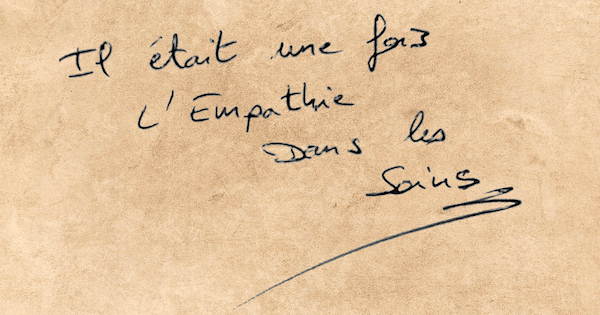 Il était une fois
L'Empathie
Dans les
Soins